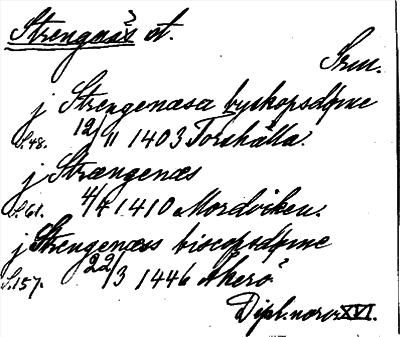 Strengnäs st.
Srm.
j Strengenæsa byskopsdøme
S. 48. 12/11 1403 Torshälla.
j Strængenæs
S. 61. 4/7 1410 Mordviken.
j Strengenæss biscopsdøme
S. 157. 22/3 1446 Åkerö
Dipl. norv. XVI.